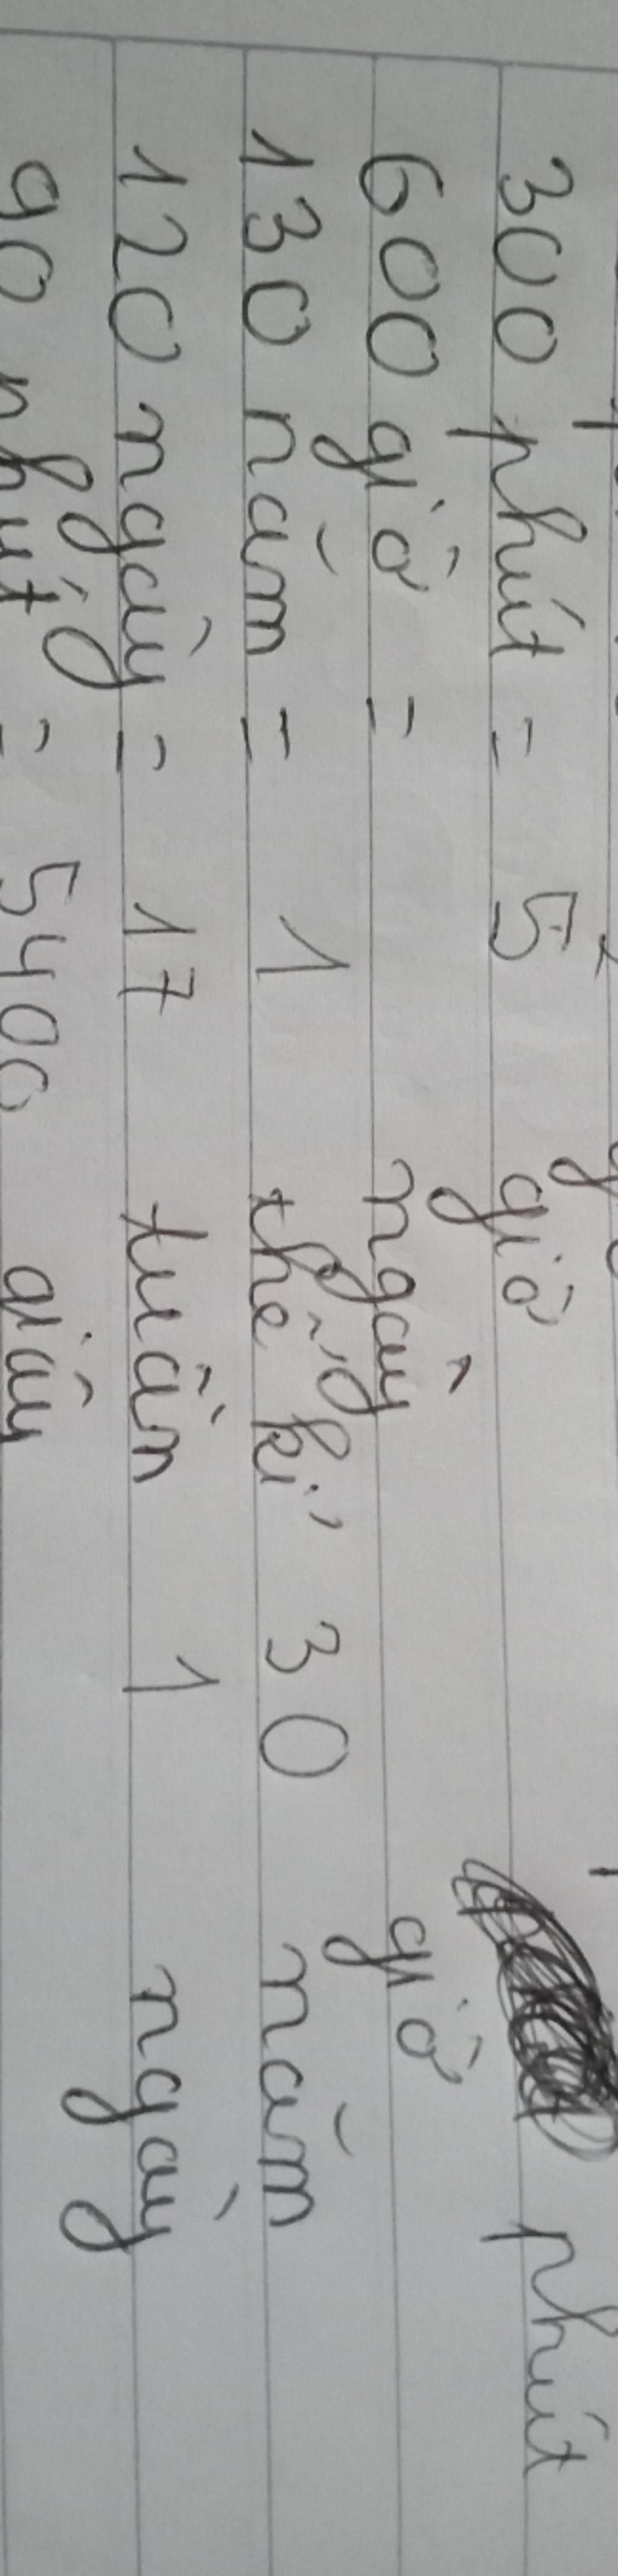 300 phút = 5 giờ phút
600 giờ = ngày giờ
130 năm = 1 thế kỉ 30 năm
120 ngày = 17 tuần 1 ngày
90 phút = 5400 giây